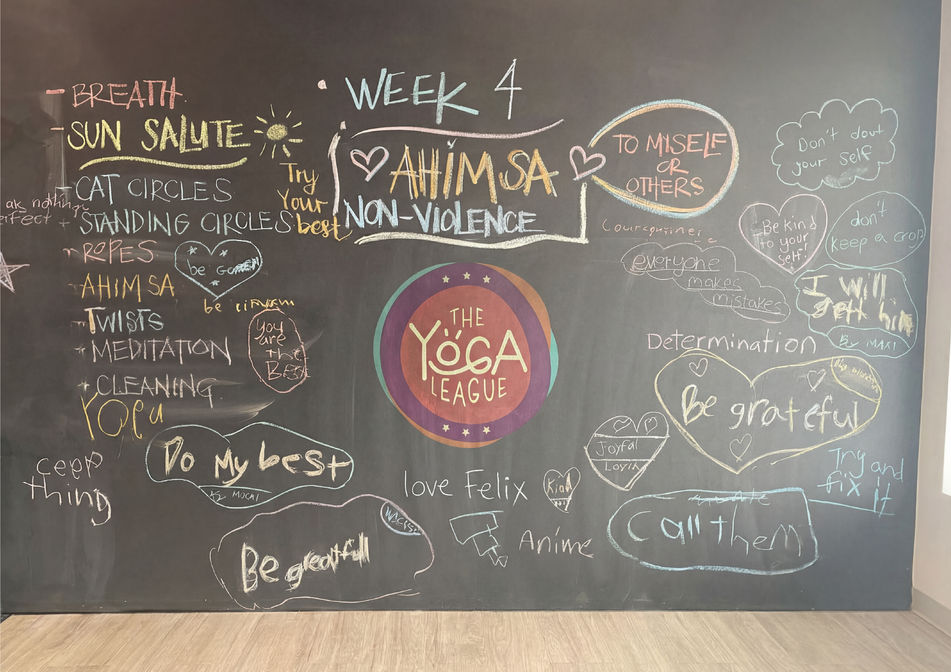 WEEK 4
BREATH
SUN SALUTE
CAT CIRCLES
STANDING CIRCLES
ROPES
AHIMSA
TWISTS
MEDITATION
CLEANING
Try
Your
best
AHIMSA
NON-VIOLENCE
TO MISELF
OR
OTHERS
Don't dout
your self
Be kind
to your
self!
don't
keep a crop
everyone
makes
mistakes
I will
By MAXI
be
be
You
are
the
Best
THE
YOGA
LEAGUE
Determination
Be grateful
Do My best
love Felix
Kind
Joyful
Try and
fix it
thing
Be greatfull
Anime
Call them